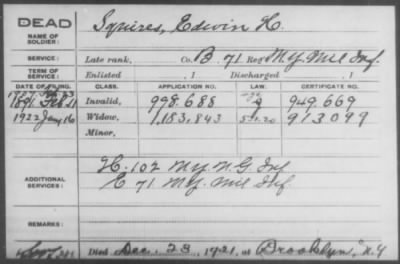 DEAD
NAME OF SOLDIER: Squires, Edwin H.
SERVICE: Late rank, Co. B. 71 Reg't N.Y. Mil Inf.
TERM OF SERVICE: Enlisted , 1 Discharged , 1
DATE OF FILING. CLASS. APPLICATION NO. LAW. CERTIFICATE NO.
1891 Feb 11 Invalid, 998.688 949.669
1922 Jan 16 Widow, 1.183.843 5-1-20 913099
Minor,
ADDITIONAL SERVICES: H. 102 N.Y. N.G. Inf
E 71 N.Y. Mil Inf.
REMARKS:
Died Dec. 23, 1921, at Brooklyn N.Y